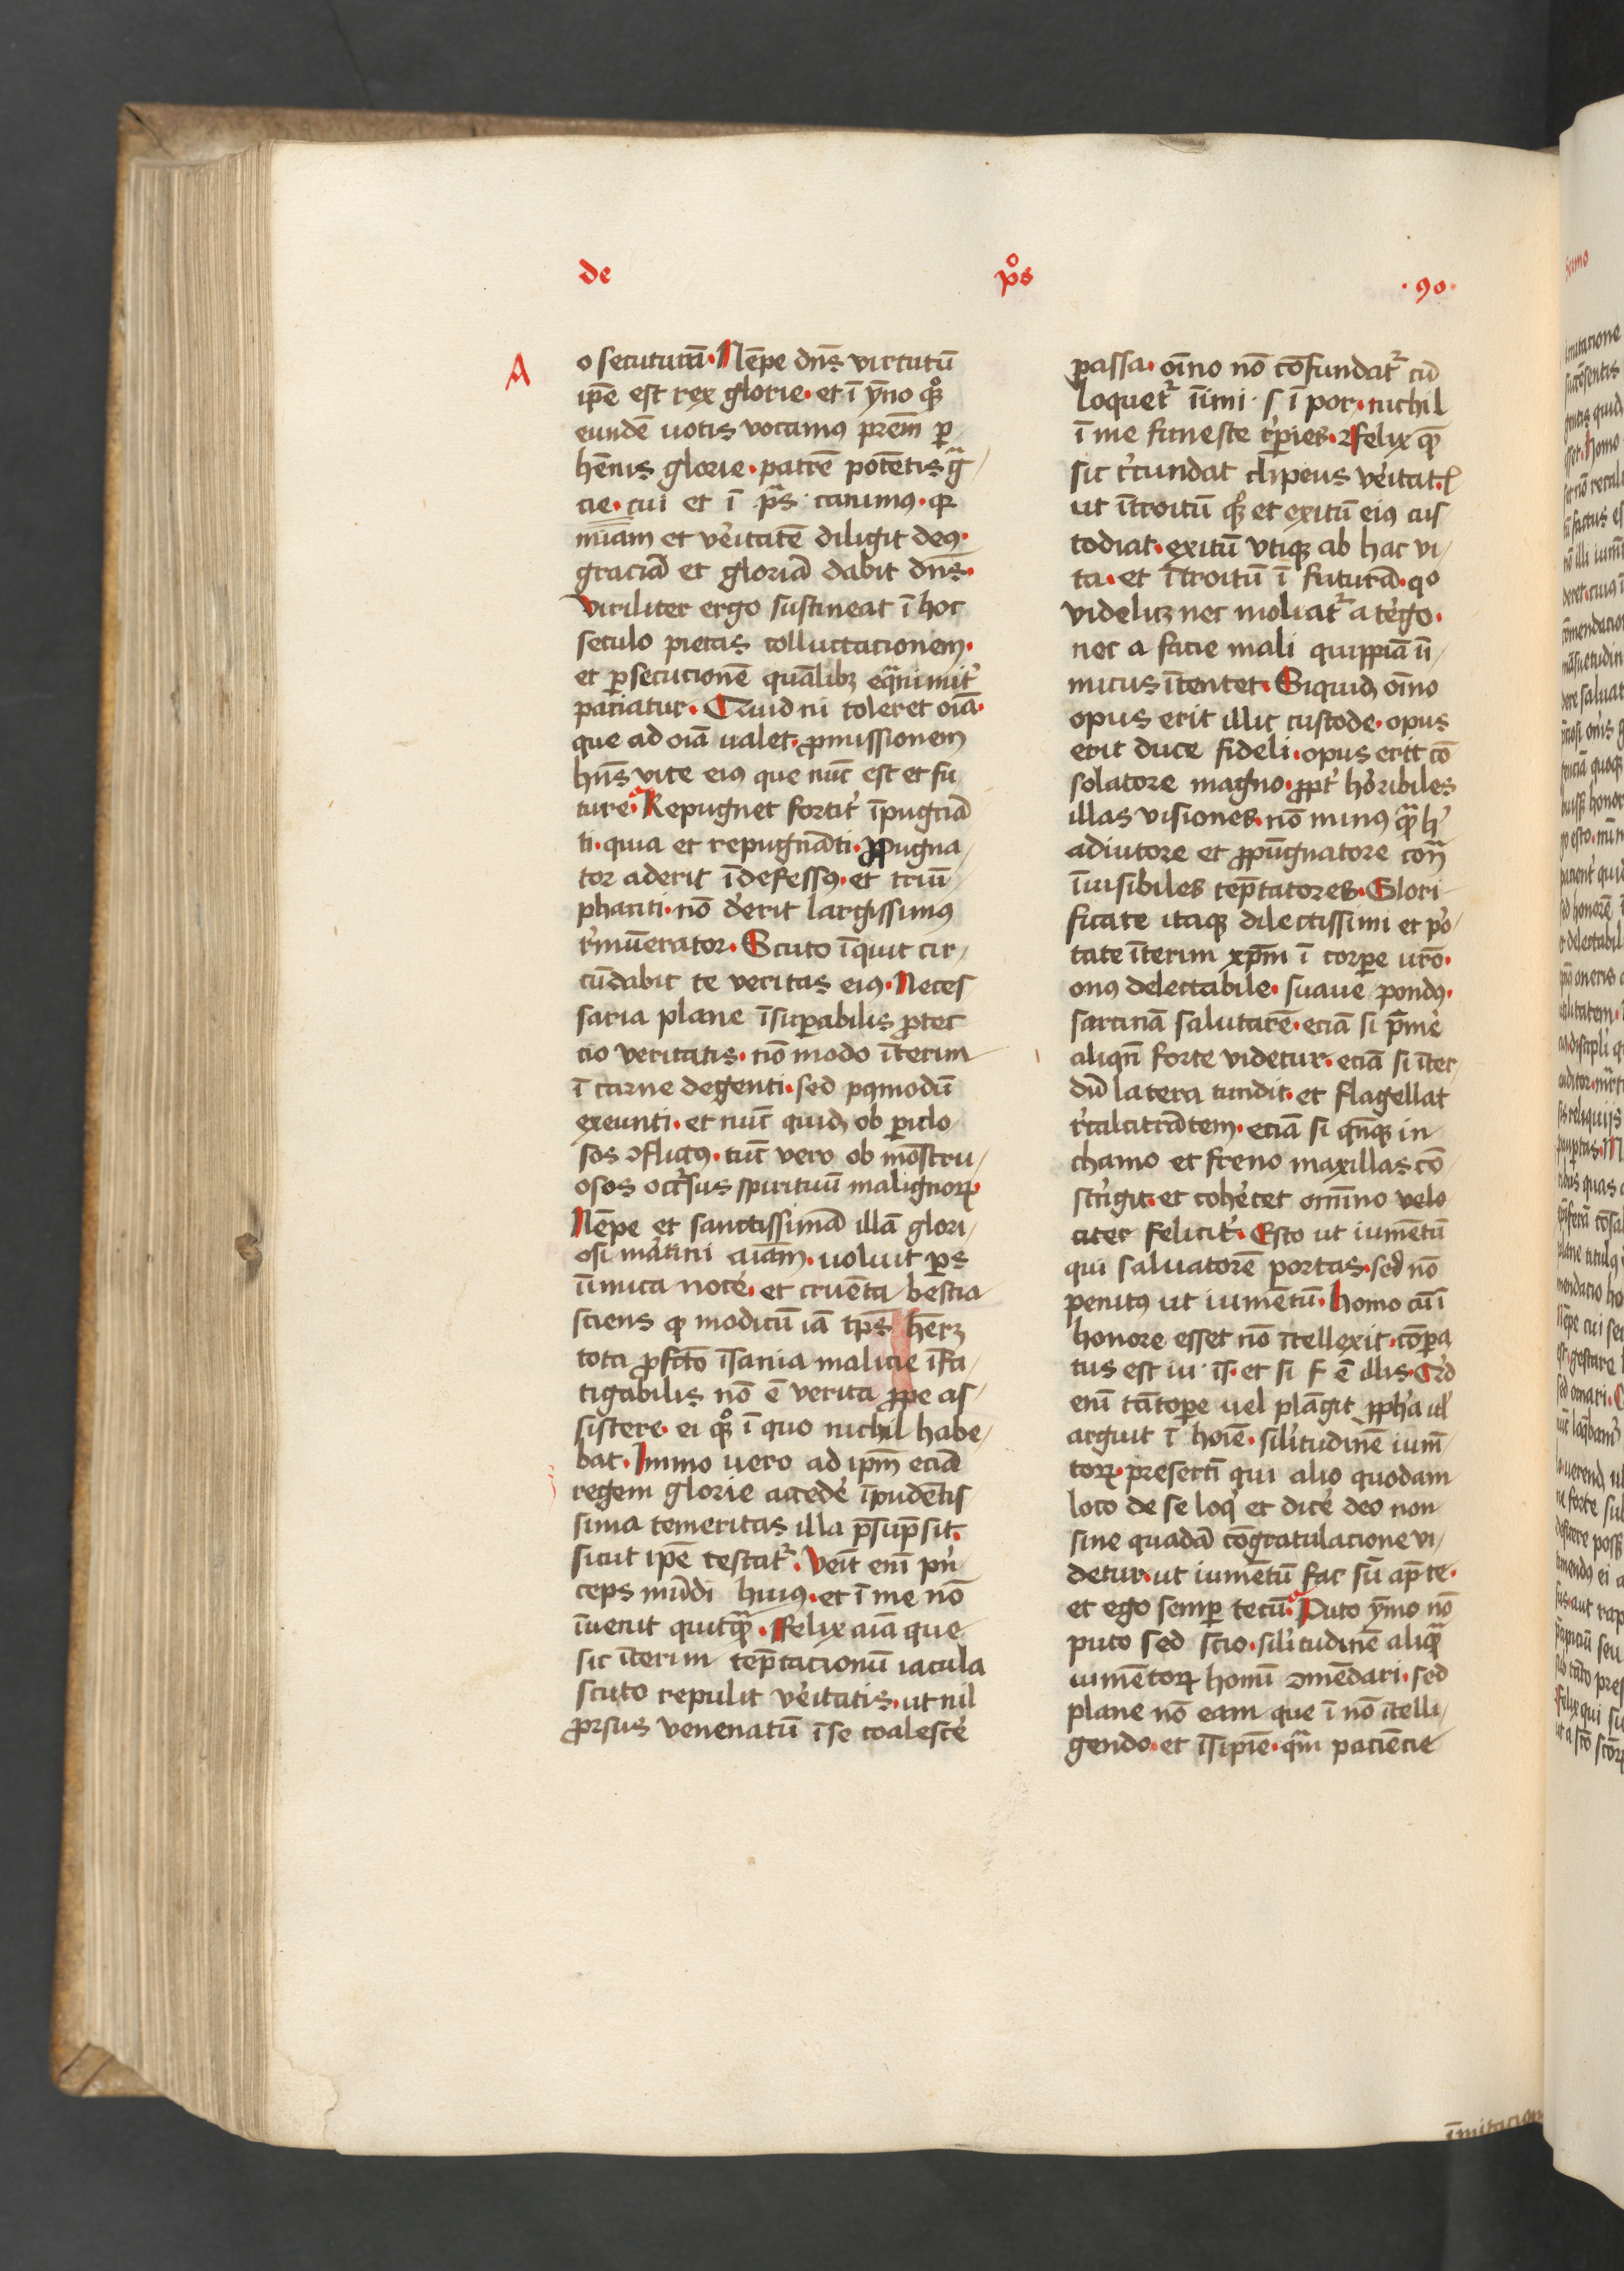 de pͦs ·90·
A
o secuturū. Nēpe dn̄s virtutū
ip̄e est rex glorie. et ī ẏno qͦꝫ
eundē uotis vocamꝰ pr̄em ꝑ
hēnis glorie. patrē potētis gᷓ
cie. cui et ī pᷓs. canimꝰ. qꝛ
miam et vēitatē diligit deꝰ.
graciā et gloriā dabit dn̄s.
Viriliter ergo sustineat ī hoc
seculo pietas colluctacionem.
et ꝑsecucionē quālibꝫ eqᷓnimit̓
paciatur. Quid ni toleret oīa.
que ad oīa ualet. ꝓmissionem
hn̄s vite eiꝰ que nūc est et fu
ture. Repugnet fortit̓ īpugnā
ti. quia et repugnāti. ꝓpugna
tor aderit īdefessꝰ. et triū
phanti. nō d̓erit largissimꝰ
r̓mūerator. Scuto īquit cir
cūdabit te veritas eiꝰ. Neces
saria plane īsuꝑabilis ꝓtec
cio veritatis. nō modo īterim
ī carne degenti. sed pꝰmodū
exeunti. et nūc quidꝫ ob ꝑiclo
sos ꝯflictꝰ. tūc vero ob mōstru
osos occ̓sus spirituū malignoꝝ
Nēpe et sanctissimā illā glori
osi martini aīam. uoluit ꝑs
īimica nocē. et cruēta bestia
sciens qꝫ modicū iā tp̄s herꝫ
tota ꝓfcō īsania malicie īfa
tigabilis nō ē verita ꝓpe as
sistere. ei qͦꝫ ī quo nichil habe
bat. Immo uero ad ip̄m eciā
regem glorie accedē īpudētis
sima temeritas illa p̄sūpsit.
sicut ip̄e testat᷑. Veīt enī pn̓
ceps mūdi huius. et ī me nō
īuenit quitqᷓ. Felix aīa que
sic īterim tēptacionū iacula
scuto repulit vēitatis. ut nil
ꝓrsus venenatū ī se coalescē
passa. oīno nō cōfundat᷑ cū
loquet᷑ īimi. s ī por. nichil
ī me funeste r̓pies. Felix qꝫ
sic c̓cundat clipeus vēitatꝭ
ut ītroitū qꝫ et exitū eiꝰ cus
todiat. exitū vtiqꝫ ab hac vi
ta. et ītroitū ī futurā. qo
videlicꝫ nec moliat᷑ a t̓ego.
nec a facie mali quippiā īi
micus ītentet. Siquidꝫ oīno
opus erit illic custode. opus
erit duce fideli. opus erit cō
solatore magno. ꝓpt̓ hōribiles
illas visiones. nō minꝰ qᷓꝫ h̓
adiutore et ꝓpūgnatore cont̄
īuisibiles tēptatores. Glori
ficate itaqꝫ dilectissimi et por
tate īterim xp̄m ī corꝑe ur̄o.
onꝰ delectabile. suaue pondꝰ.
sarcinā salutarē. eciā si p̄mē
aliqn̄ forte videtur. eciā si īter
dū latera tundit. et flagellat
r̓calcitrātem. eciā si qn̄qꝫ in
chamo et freno maxillas cō
strīgit. et cohērcet omnino velo
citer feliciť. Esto ut iumētū
qui saluatorē portas. sed nō
penitꝰ ut iumētū. Homo cū ī
honore esset nō ītellexit. cōꝑa
tus est iu. īs. et si f ē illis. Qd̓
enī tātoꝑe vel plāgit ꝓpha ul̓
arguit ī hoīe. sil̓itudinē ium̄
toꝝ. presertī qui alio quodam
loco de se loq̓ et dicē deo non
sine quadā cōgratulacione vi
detur. ut iumētū fac sū ap̄ te.
et ego semꝑ tecū. Puto ẏmo nō
puto sed scio. sil̓itudinē aliqᷓ
iumētoꝝ homī ꝯmēdari. sed
plane nō eam que ī nō ītelli
gendo. et īsipiē. qᷓm paciēcie